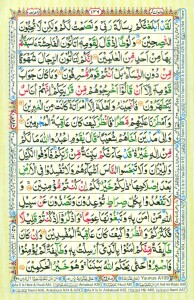 لَقَدْ أَبْلَغْتُكُمْ رِسَالَةَ رَبِّي وَنَصَحْتُ لَكُمْ وَلٰكِنْ لَّا تُحِبُّونَ
النّٰصِحِينَ وَلُوطًا إِذْ قَالَ لِقَوْمِهٖ أَتَأْتُونَ الْفَاحِشَةَ مَا سَبَقَكُمْ
بِهَا مِنْ أَحَدٍ مِّنَ الْعٰلَمِينَ إِنَّكُمْ لَتَأْتُونَ الرِّجَالَ شَهْوَةً
مِّنْ دُونِ النِّسَاءِ بَلْ أَنْتُمْ قَوْمٌ مُّسْرِفُونَ وَمَا كَانَ جَوَابَ
قَوْمِهٖ إِلَّا أَنْ قَالُوا أَخْرِجُوهُمْ مِّنْ قَرْيَتِكُمْ إِنَّهُمْ أُنَاسٌ
يَّتَطَهَّرُونَ فَأَنْجَيْنٰهُ وَأَهْلَهٗ إِلَّا امْرَأَتَهٗ كَانَتْ مِنَ الْغٰبِرِينَ
وَأَمْطَرْنَا عَلَيْهِمْ مَّطَرًا فَانْظُرْ كَيْفَ كَانَ عَاقِبَةُ الْمُجْرِمِينَ
وَإِلٰى مَدْيَنَ أَخَاهُمْ شُعَيْبًا قَالَ يٰقَوْمِ اعْبُدُوا اللّٰهَ مَا لَكُمْ
مِّنْ إِلٰهٍ غَيْرُهٗ قَدْ جَاءَتْكُمْ بَيِّنَةٌ مِّنْ رَّبِّكُمْ فَأَوْفُوا الْكَيْلَ
وَالْمِيزَانَ وَلَا تَبْخَسُوا النَّاسَ أَشْيَاءَهُمْ وَلَا تُفْسِدُوا فِي الْأَرْضِ
بَعْدَ إِصْلَاحِهَا ذٰلِكُمْ خَيْرٌ لَّكُمْ إِنْ كُنْتُمْ مُّؤْمِنِينَ وَلَا
تَقْعُدُوا بِكُلِّ صِرَاطٍ تُوعِدُونَ وَتَصُدُّونَ عَنْ سَبِيلِ
اللّٰهِ مَنْ اٰمَنَ بِهٖ وَتَبْغُونَهَا عِوَجًا وَاذْكُرُوا إِذْ كُنْتُمْ قَلِيلًا
فَكَثَّرَكُمْ وَانْظُرُوا كَيْفَ كَانَ عَاقِبَةُ الْمُفْسِدِينَ وَإِنْ كَانَ
طَائِفَةٌ مِّنْكُمْ اٰمَنُوا بِالَّذِي أُرْسِلْتُ بِهٖ وَطَائِفَةٌ لَّمْ يُؤْمِنُوا
فَاصْبِرُوا حَتّٰى يَحْكُمَ اللّٰهُ بَيْنَنَا وَهُوَ خَيْرُ الْحٰكِمِينَ